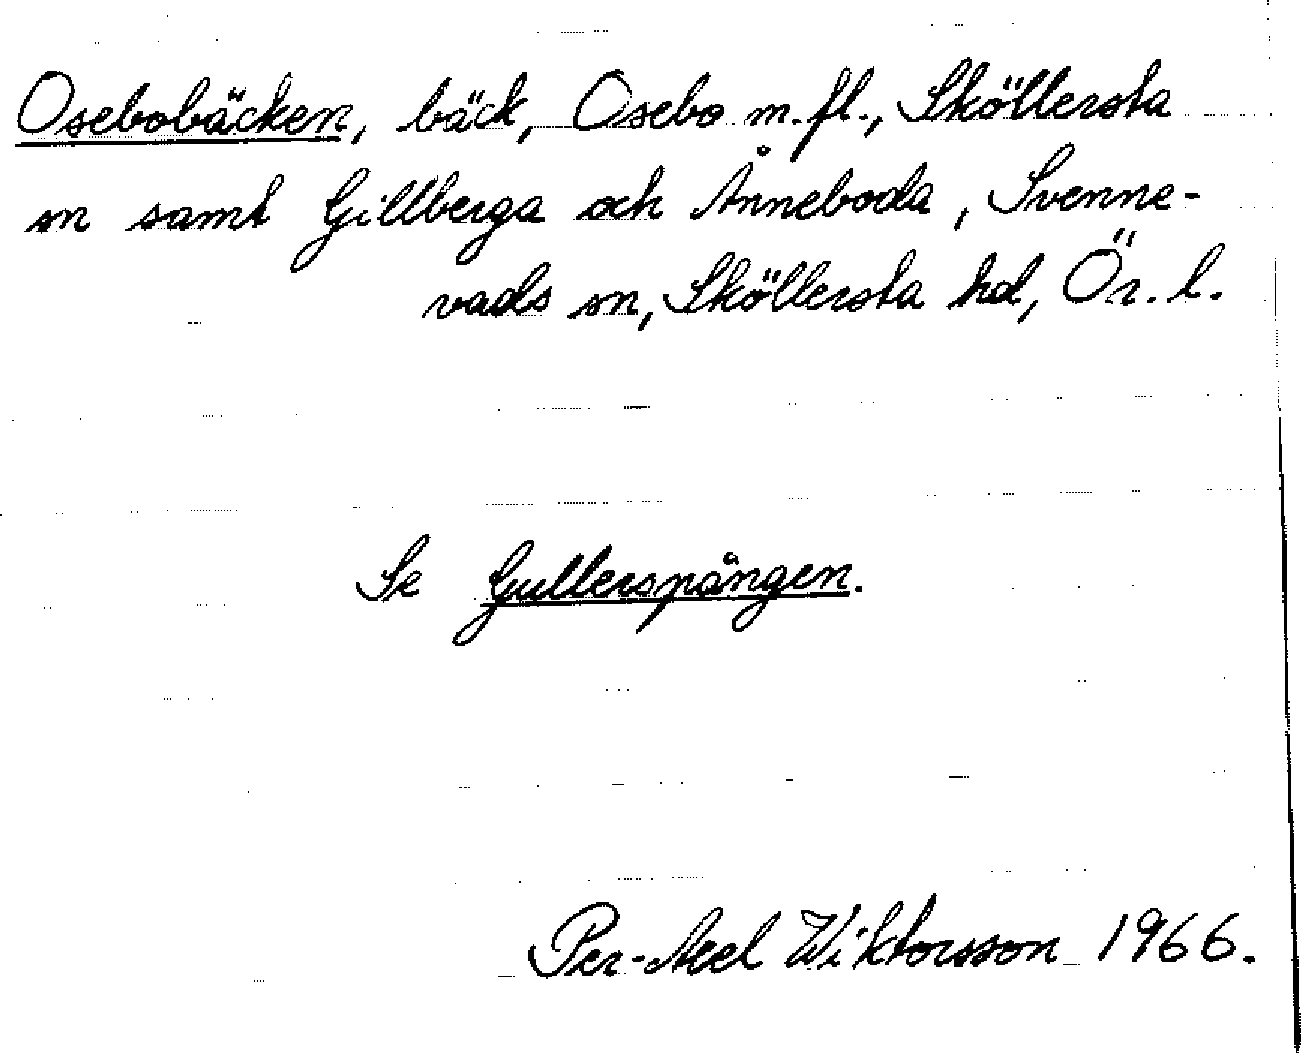 Osebobäcken, bäck, Osebo m.fl., Sköllersta
sn samt Gillberga och Ånneboda, Svenne-
vads sn, Sköllersta hd, Ör. l.
Se Gullerspången.
Per-Axel Wiktorsson 1966.